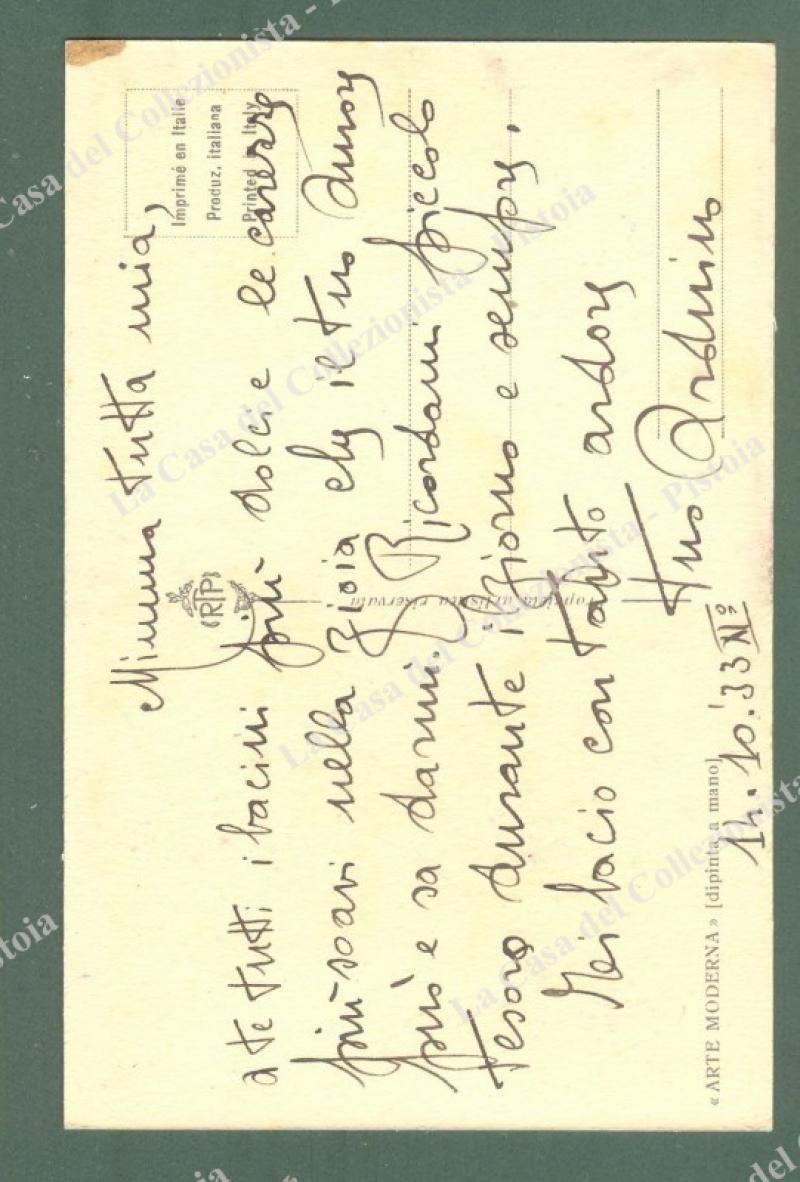 Mimma tutta mia,
a te tutti i bacini più dolci e le carezze
più soavi nella gioia che il tuo amore
può e sa darmi. Ricordami piccolo
tesoro durante il giorno e sempre.
bacio con tanto ardore
tuo Arduino
14.10.'33 XIº
Imprimé en Italie
Produz. italiana
Printed in Italy
RTP
Proprietà artistica riservata
« ARTE MODERNA » [dipinta a mano]
La Casa del Collezionista - Pistoia